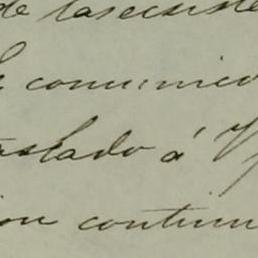 de las ecsiste
comunico
traslado á V
ion continu